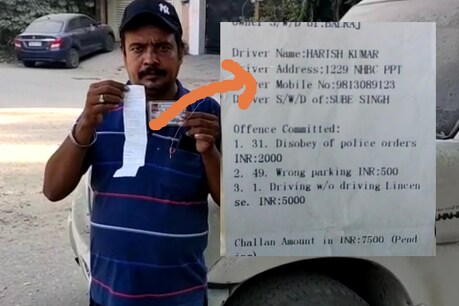 Owner S/W/D of:BALRAJ
Driver Name:HARISH KUMAR
river Address:1229 NHBC PPT
er Mobile No:9813089123
Driver S/W/D of:SUBE SINGH
Offence Committed:
1. 31. Disobey of police orders
INR:2000
2. 49. Wrong parking INR:500
3. 1. Driving w/o driving Lincen
se. INR:5000
Challan Amount in INR:7500 (Pend
ing)